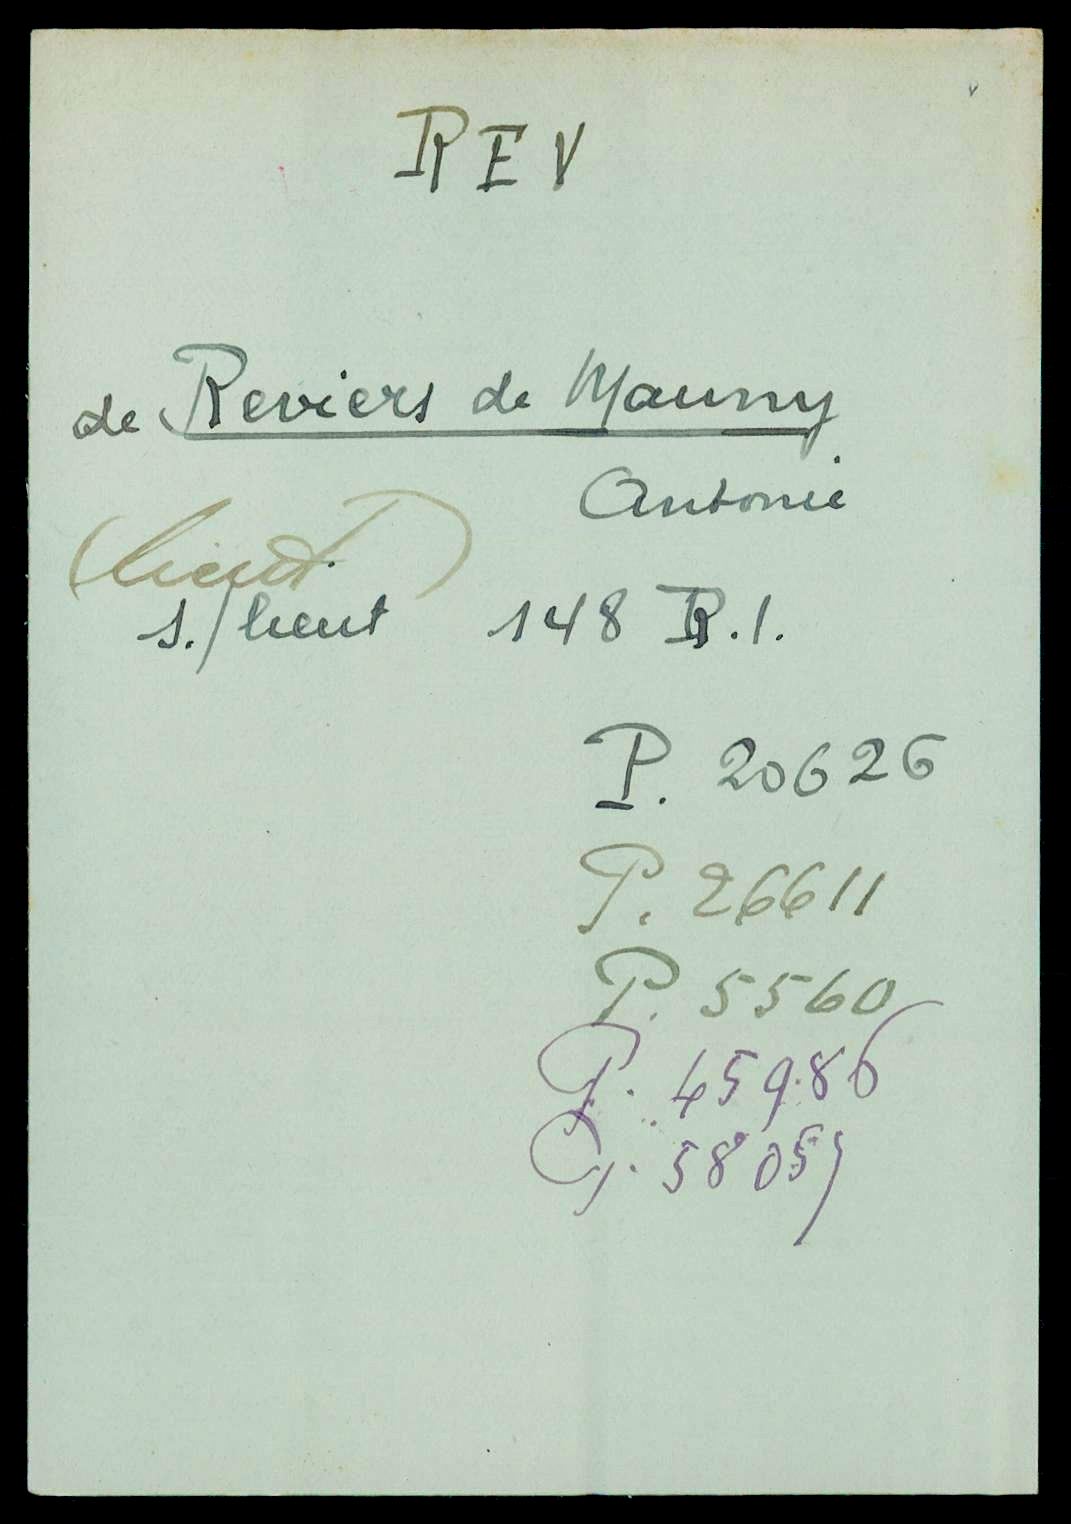 REV
de Reviers de Mauny
Antonie
(lieut.)
s./lieut 148 R.I.
P. 20626
P. 26611
P. 5560
P. 45986
P. 58057